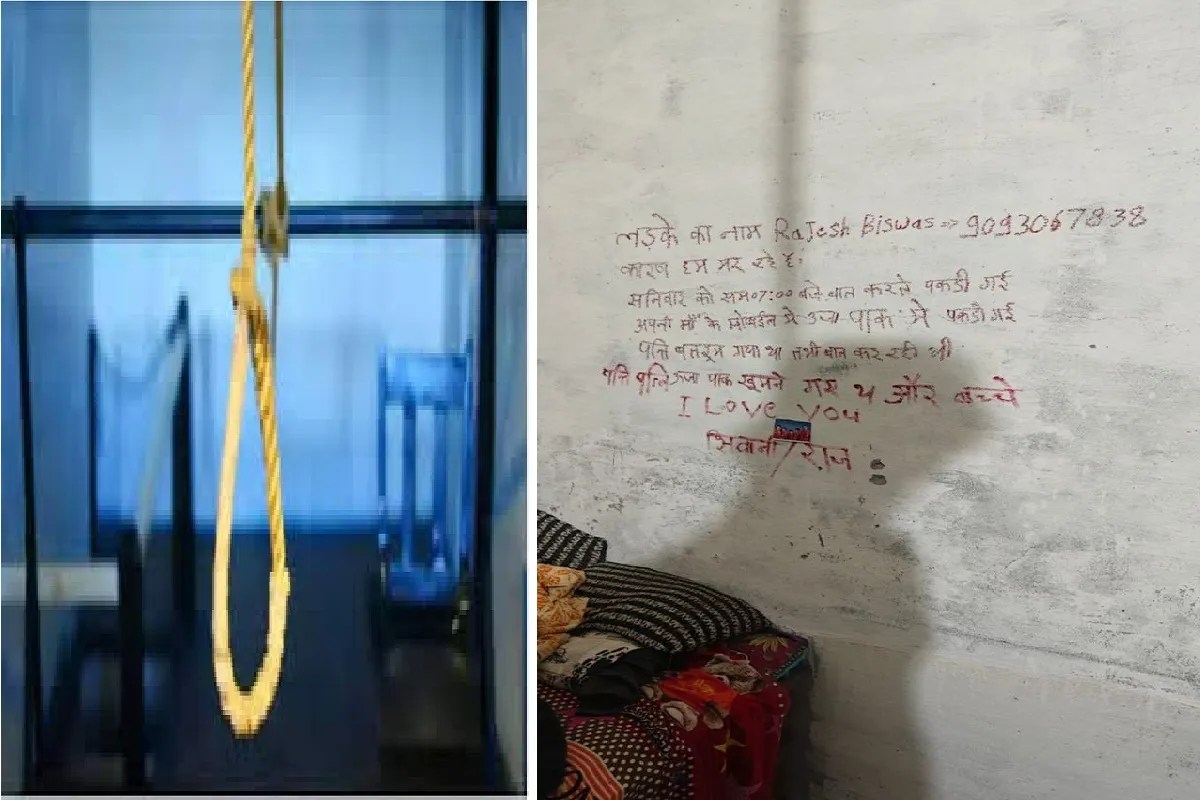 लड़के का नाम RaJesh Biswas => 9093067838
कारण हम मर रहे है।
सनिवार को सम07:00 बजे बात करते पकडी गई
अपनी माँ के मोबाईल से ऊजा पाक मे पकडी गई
पति बातरूम गया था तभी बात कर रही थी
पत्ति पत्नि ऊजा पाक घूमने गए थे और बच्चे
I Love You
सिवानी/राज